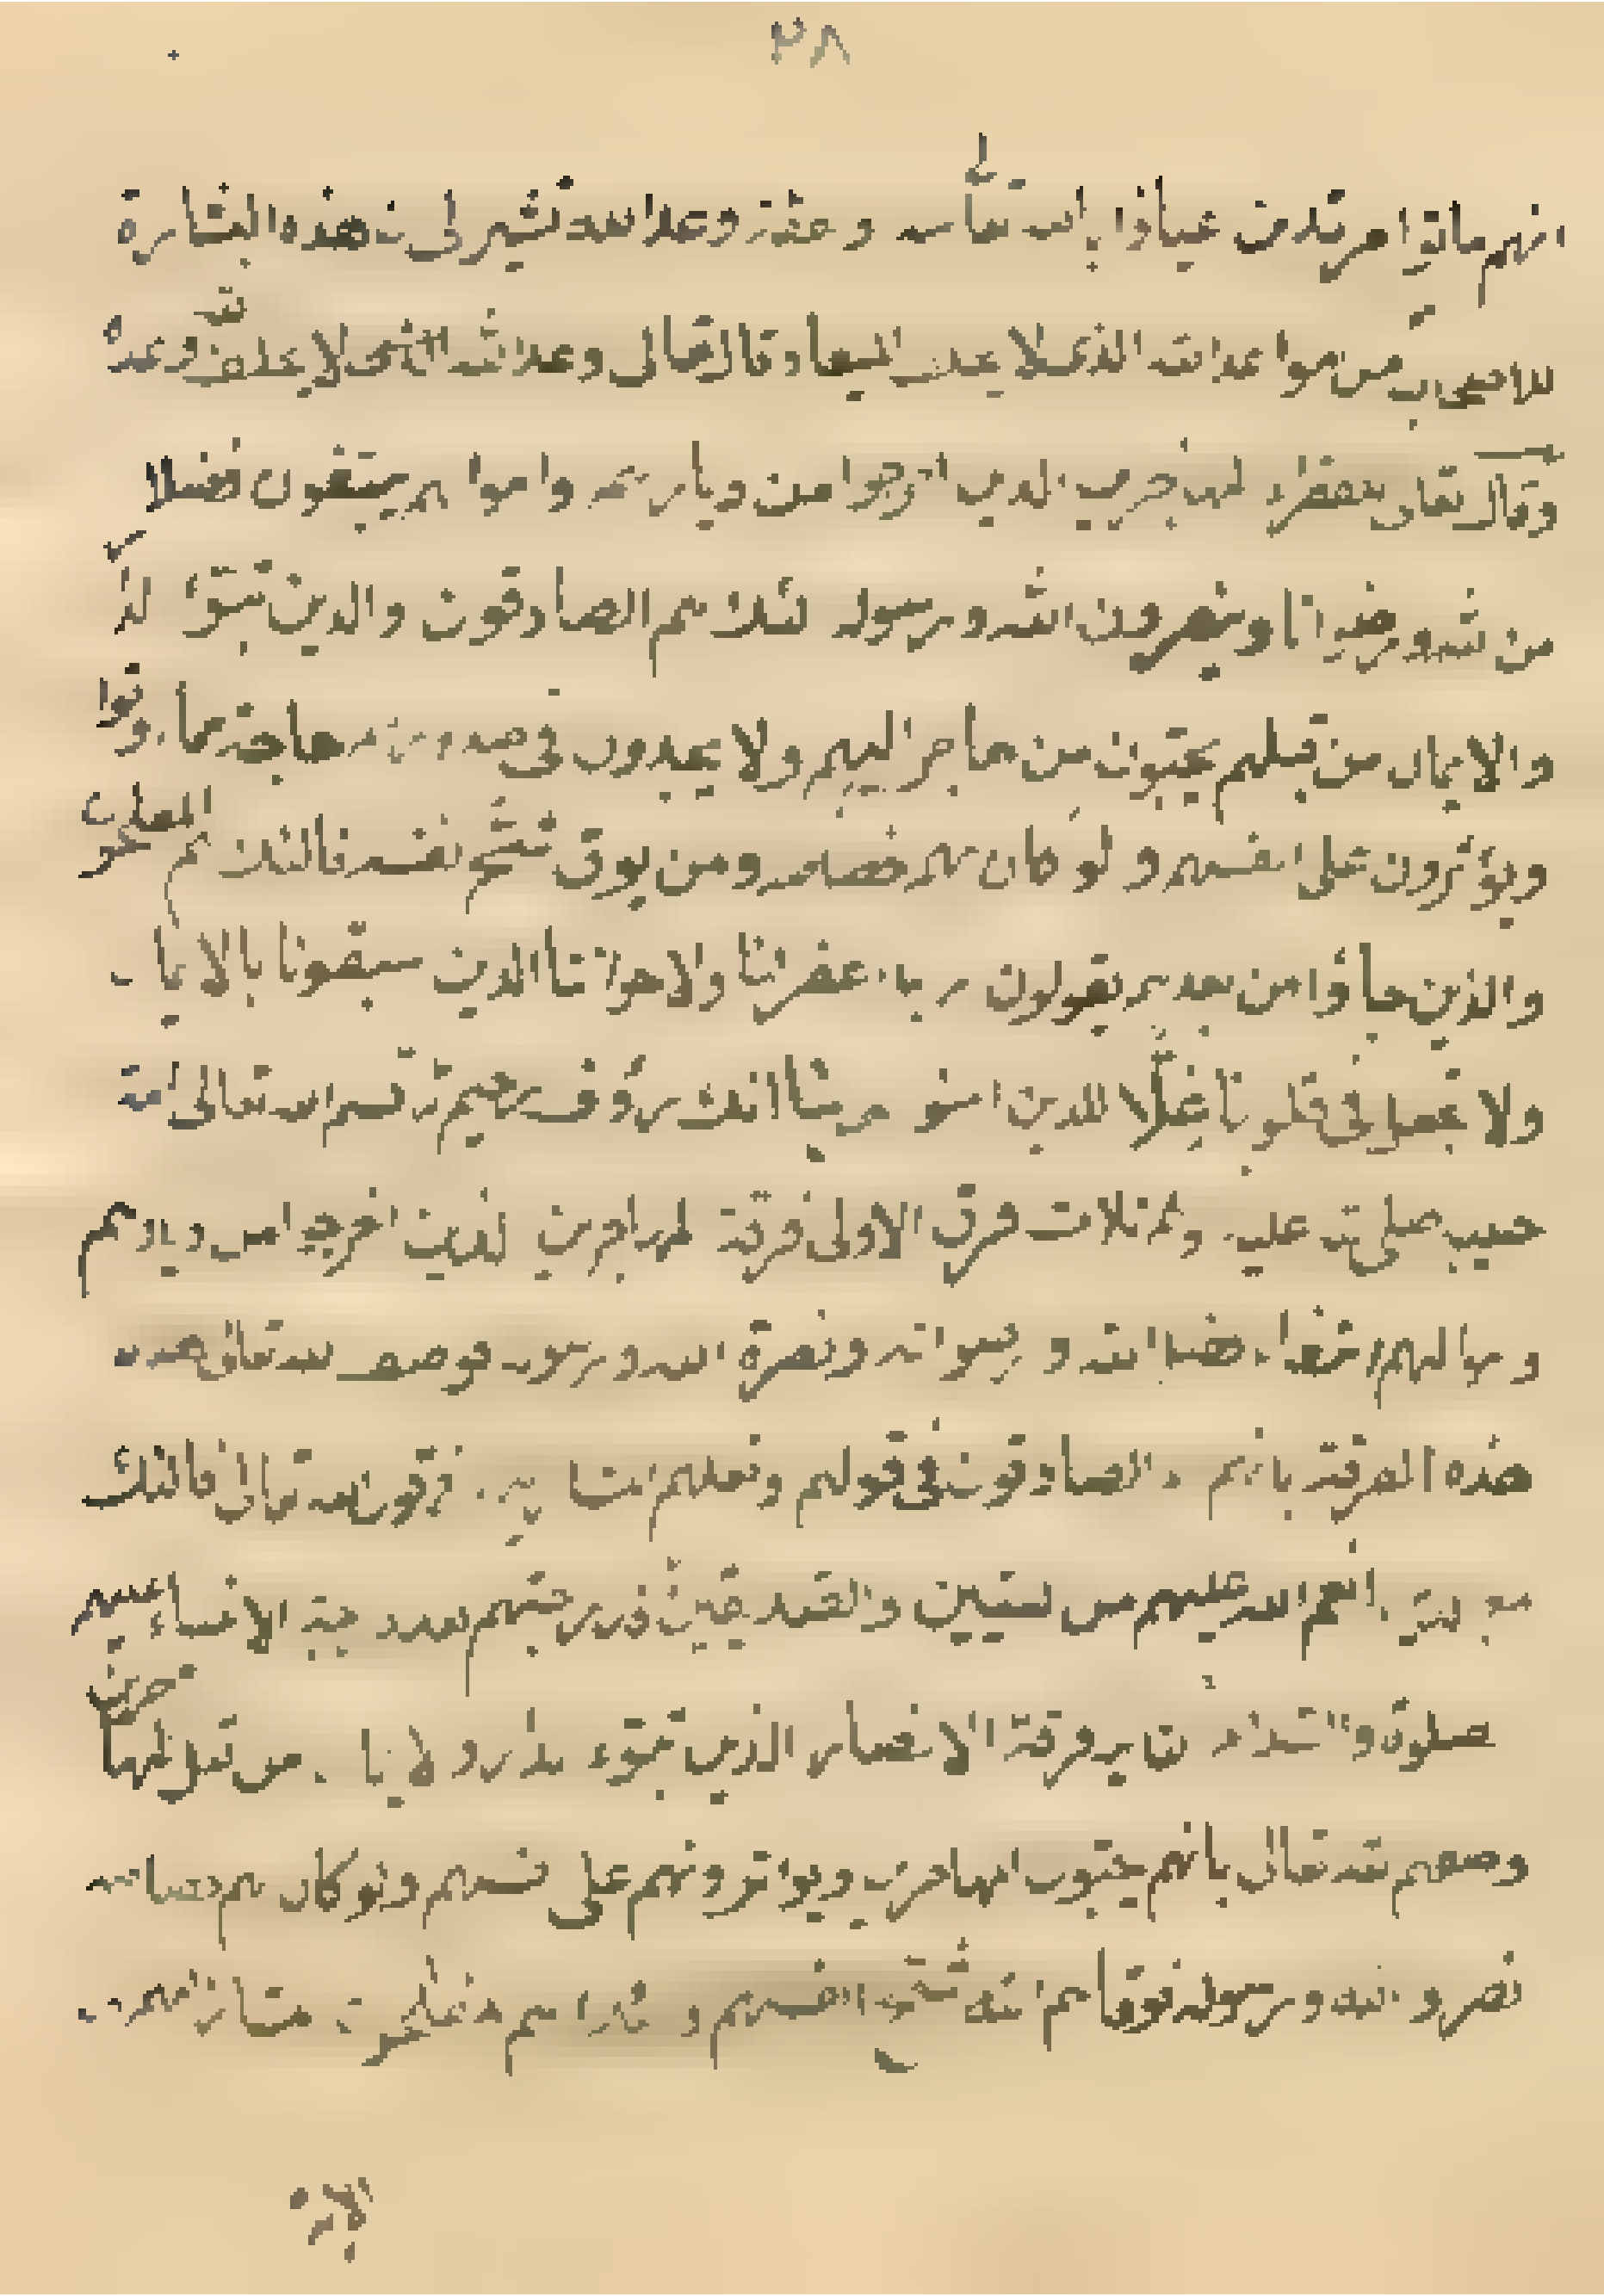 ٣٨
انهم ماتوا مرتدين عياذا بالله تعالى وعدا لله تشير الى هذه البشارة
من مواعد الله الذي لا يخلف الميعاد وقال تعالى وعد الله الذي لا يخلف الله وعده
وقال تعالى للفقراء المهاجرين الذين اخرجوا من ديارهم واموالهم يبتغون فضلا
من الله ورضوانا وينصرون الله ورسوله اولئك هم الصادقون والذين تبوؤ الدار
والايمان من قبلهم يحبون من هاجر اليهم ولا يجدون في صدورهم حاجة مما اوتوا
ويؤثرون على انفسهم ولو كان بهم خصاصه ومن يوق شح نفسه فاولئك هم المفلحون
والذين جاؤا من بعدهم يقولون ربنا اغفر لنا ولاخواننا الذين سبقونا بالايمان
ولا تجعل في قلوبنا غلا للذين امنوا ربنا انك رؤف رحيم قسم الله تعالى امة
حبيبه صلى الله عليه ثلاث فرق الاولى فرقة المهاجرين الذين اخرجوا من ديارهم
واموالهم فضل الله ورضوانه ونصرة الله ورسوله فوصف الله تعالى هذه
هذه الفرقة بانهم الصادقون في قولهم وفعلهم وقال الله تعالى فاولئك
مع الذين انعم الله عليهم من النبيين والصديقين فدرجتهم بعد درجة الانبياء عليهم
الصلوة والسلام الثانية فرقة الانصار الذين تبوء الدار والايمان من قبل المهاجرين
وصفهم الله تعالى بانهم يحبون المهاجرين ويؤثرونهم على انفسهم ولو كان بهم خصاصه
نصروا الله ورسوله فوقاهم الله شح انفسهم هم المفلحون